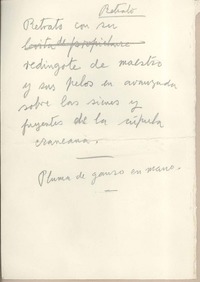 Retrato
Retrato con su
levita de
redingote de maestro
y sus pelos en avanzada
sobre las sienes y
fuyentes de la cúpula
craneana.
Pluma de ganso en mano.